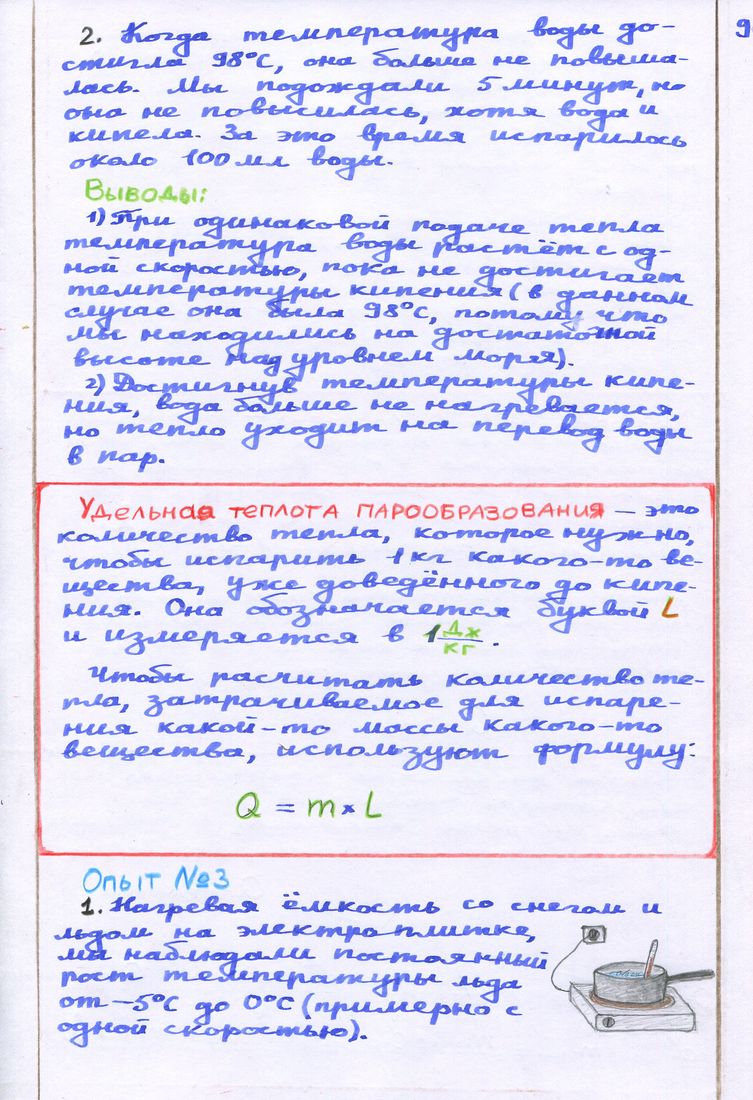 9
2. Когда температура воды до-
стигла 98°С, она больше не повыша-
лась. Мы подождали 5 минут, но
она не повысилась, хотя вода и
кипела. За это время испарилось
около 100 мл воды.
Выводы:
1) При одинаковой подаче тепла
температура воды растёт с од-
ной скоростью, пока не достигает
температуры кипения (в данном
случае она была 98°С, потому что
мы находились на достаточной
высоте над уровнем моря).
2) Достигнув температуры кипе-
ния, вода больше не нагревается,
но тепло уходит на перевод воды
в пар.
Удельная теплота парообразования – это
количество тепла, которое нужно,
чтобы испарить 1 кг какого-то ве-
щества, уже доведённого до кипе-
ния. Она обозначается буквой L
и измеряется в 1 Дж/кг.
Чтобы расчитать количество те-
пла, затрачиваемое для испаре-
ния какой-то массы какого-то
вещества, используют формулу:
Q = m × L
Опыт №3
1. Нагревая ёмкость со снегом и
льдом на электроплитке,
мы наблюдали постоянный
рост температуры льда
от –5°С до 0°С (примерно с
одной скоростью).